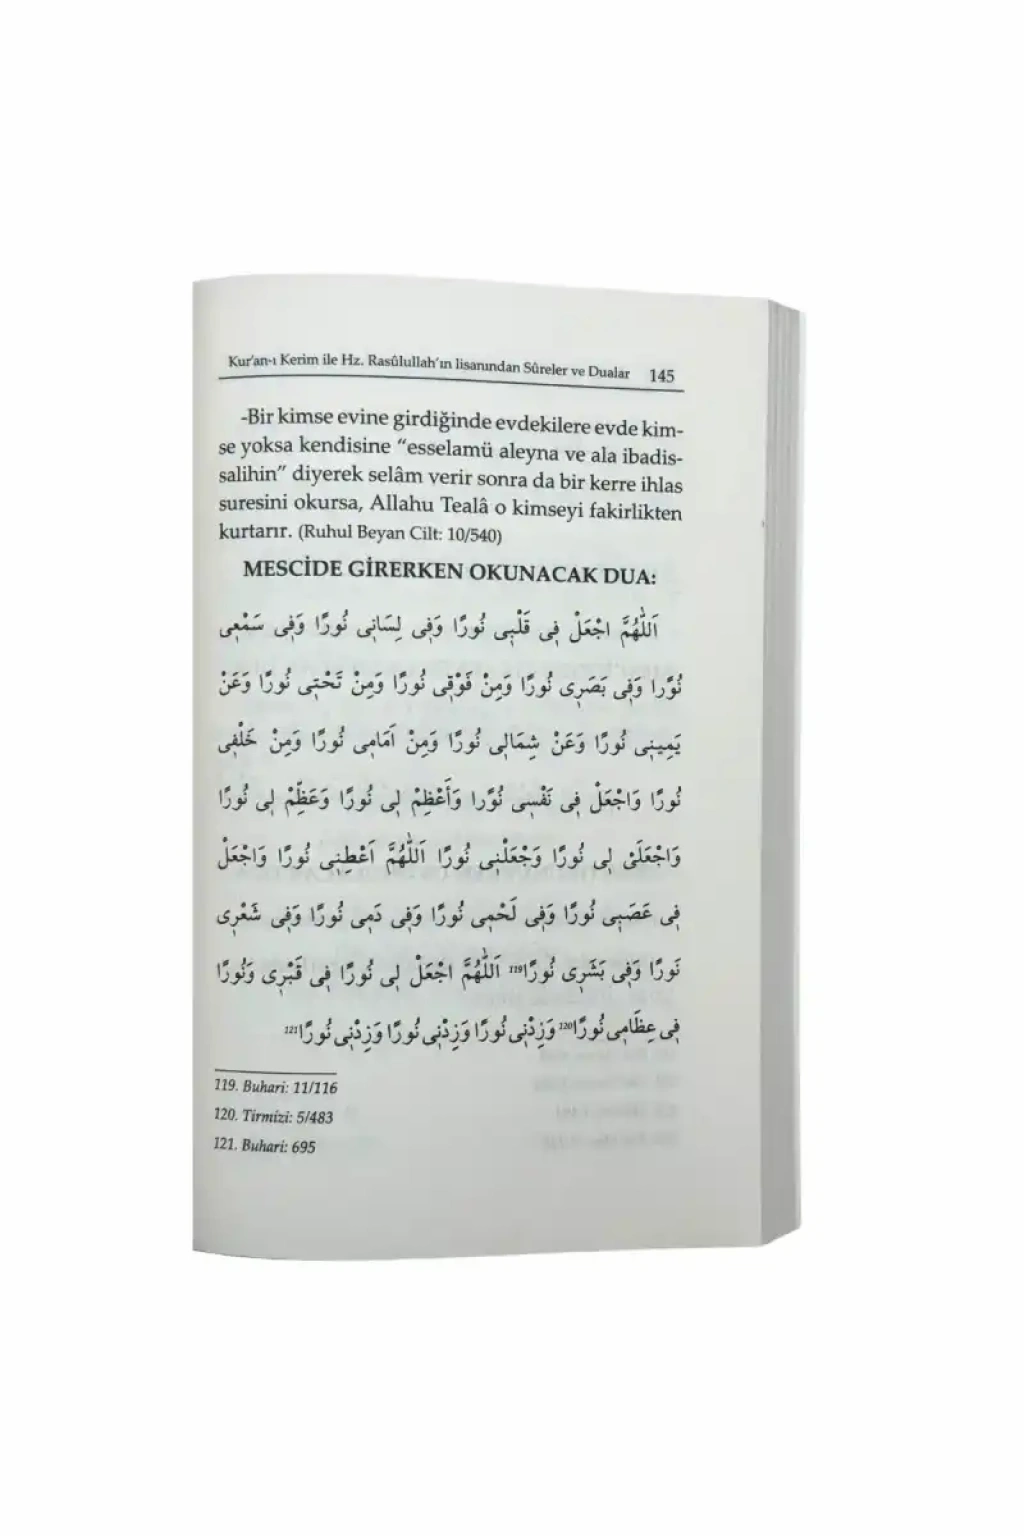 Kur'an-ı Kerim ile Hz. Rasûlullah'ın lisanından Sûreler ve Dualar 145
-Bir kimse evine girdiğinde evdekilere evde kim-
se yoksa kendisine "esselamü aleyna ve ala ibadis-
salihin" diyerek selâm verir sonra da bir kerre ihlas
suresini okursa, Allahu Tealâ o kimseyi fakirlikten
kurtarır. (Ruhul Beyan Cilt: 10/540)
MESCİDE GİRERKEN OKUNACAK DUA:
اَللّٰهُمَّ اجْعَلْ فِى قَلْبِى نُورًا وَفِى لِسَانِى نُورًا وَفِى سَمْعِى
نُورًا وَفِى بَصَرِى نُورًا وَمِنْ فَوْقِى نُورًا وَمِنْ تَحْتِى نُورًا وَعَنْ
يَمِينِى نُورًا وَعَنْ شِمَالِى نُورًا وَمِنْ اَمَامِى نُورًا وَمِنْ خَلْفِى
نُورًا وَاجْعَلْ فِى نَفْسِى نُورًا وَأَعْظِمْ لِى نُورًا وَعَظِّمْ لِى نُورًا
وَاجْعَلَىْ لِى نُورًا وَجْعَلْنِى نُورًا اَللّٰهُمَّ اَعْطِنِى نُورًا وَاجْعَلْ
فِى عَصَبِى نُورًا وَفِى لَحْمِى نُورًا وَفِى دَمِى نُورًا وَفِى شَعْرِى
نَورًا وَفِى بَشَرِى نُورًا119 اَللّٰهُمَّ اجْعَلْ لِى نُورًا فِى قَبْرِى وَنُورًا
فِى عِظَامِى نُورًا120 وَزِدْنِى نُورًا وَزِدْنِى نُورًا وَزِدْنِى نُورًا121
119. Buhari: 11/116
120. Tirmizi: 5/483
121. Buhari: 695